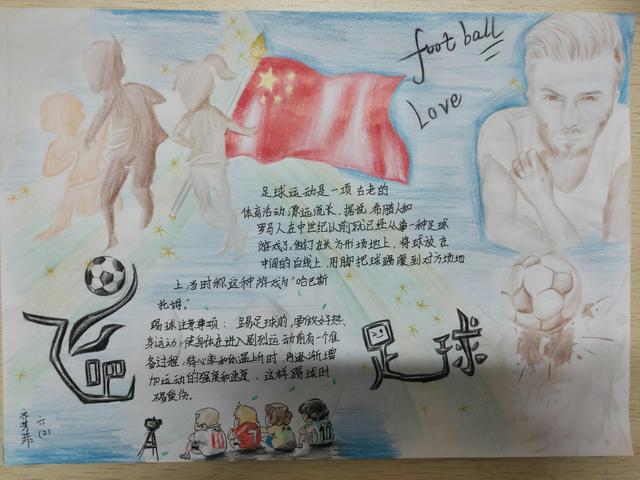 football
Love
足球运动是一项古老的
体育活动,源远流长。据说,希腊人和
罗马人在中世纪以前就已经从事一种足球
游戏了。他们在长方形场地上,将球放在
中间的白线上,用脚把球踢滚到对方场地
上,当时称这种游戏为“哈巴斯
托姆。”
踢球注意事项:踢足球前,要做好热
身运动,使身体在进入剧烈运动前有一个准
备过程,待心率和体温上升时,再逐渐增
加运动的强度和速度,这样踢球时
不易受伤。
飞吧
足球
六(2)
10
7
10